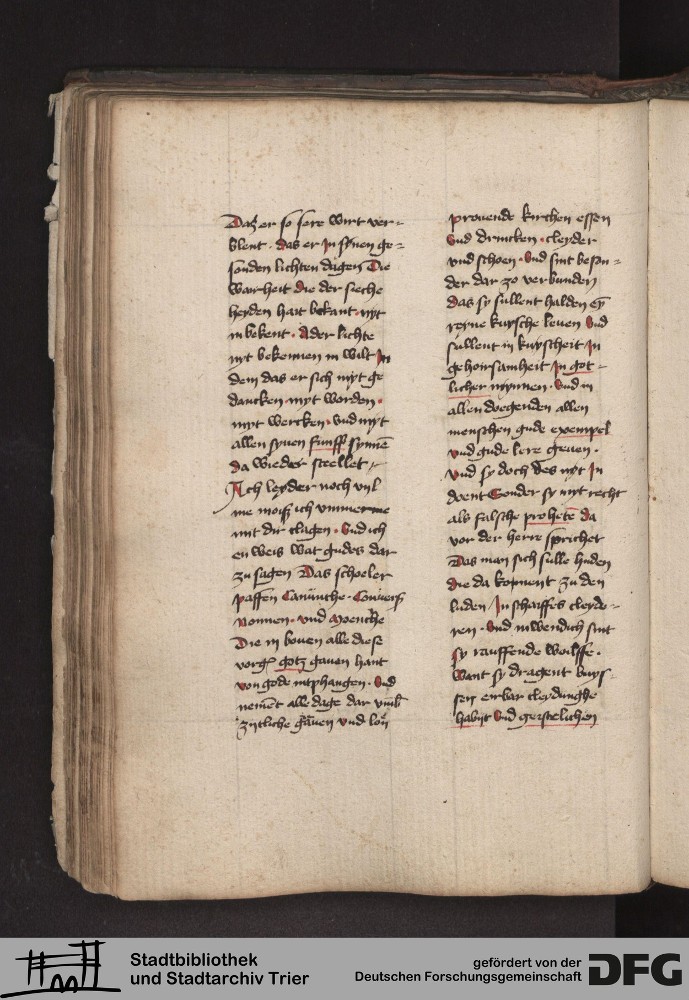 Das er so sere wirt ver=
blent. das er in synen ge=
sonden lichten dagen Die
Warheit die der sieche
heyden hait bekant. nyt
in bekent. Ader lichte
nyt bekennen in wilt In
dem das er sich myt ge
dancken. myt worden.
myt wercken. vnd myt
allen synen funff synnē
da wieder stellet
Ach leyder noch vyl
me moiß ich vmmerme
mit dir clagen. Vnd ich
en weis wat gudes dar
zu sagen Das schoeler
paffen Canūnche. Conuers
Nonnen. vnd Moenche
Die in bouen alle diese
vorgͬ gotz gauen hant
von gode intphangen. Vnd
nemēt alle dage dar vmb
zijtliche gauen vnd loīn
prouende kirchen essen
Vnd drincken. cleyder
vnd schoen. Vnd sint beson=
der dar zo verbunden
Das sy sullent halden eȳ
reyne kuysche leuen Vnd
sullent in kuyscheit in
gehoirsamheit in got=
licher mynnen. Vnd in
allen doegenden allen
menschen gude exempel
vnd gude lere geuen.
Vnd sy doch des nyt In
doent Sonder sy nyt recht
als falsche prohetē da
vor der herre sprichet
Das man sich sulle huden
die da kopment zu den
luden In schaiffes cleyde=
ren. Vnd inwendich sint
sy rauffende woilffe.
Want sy dragent buys=
sen eirbar cleydunghe
habijt Vnd geistelichen
Stadtbibliothek
und Stadtarchiv Trier
gefördert von der
Deutschen Forschungsgemeinschaft
DFG